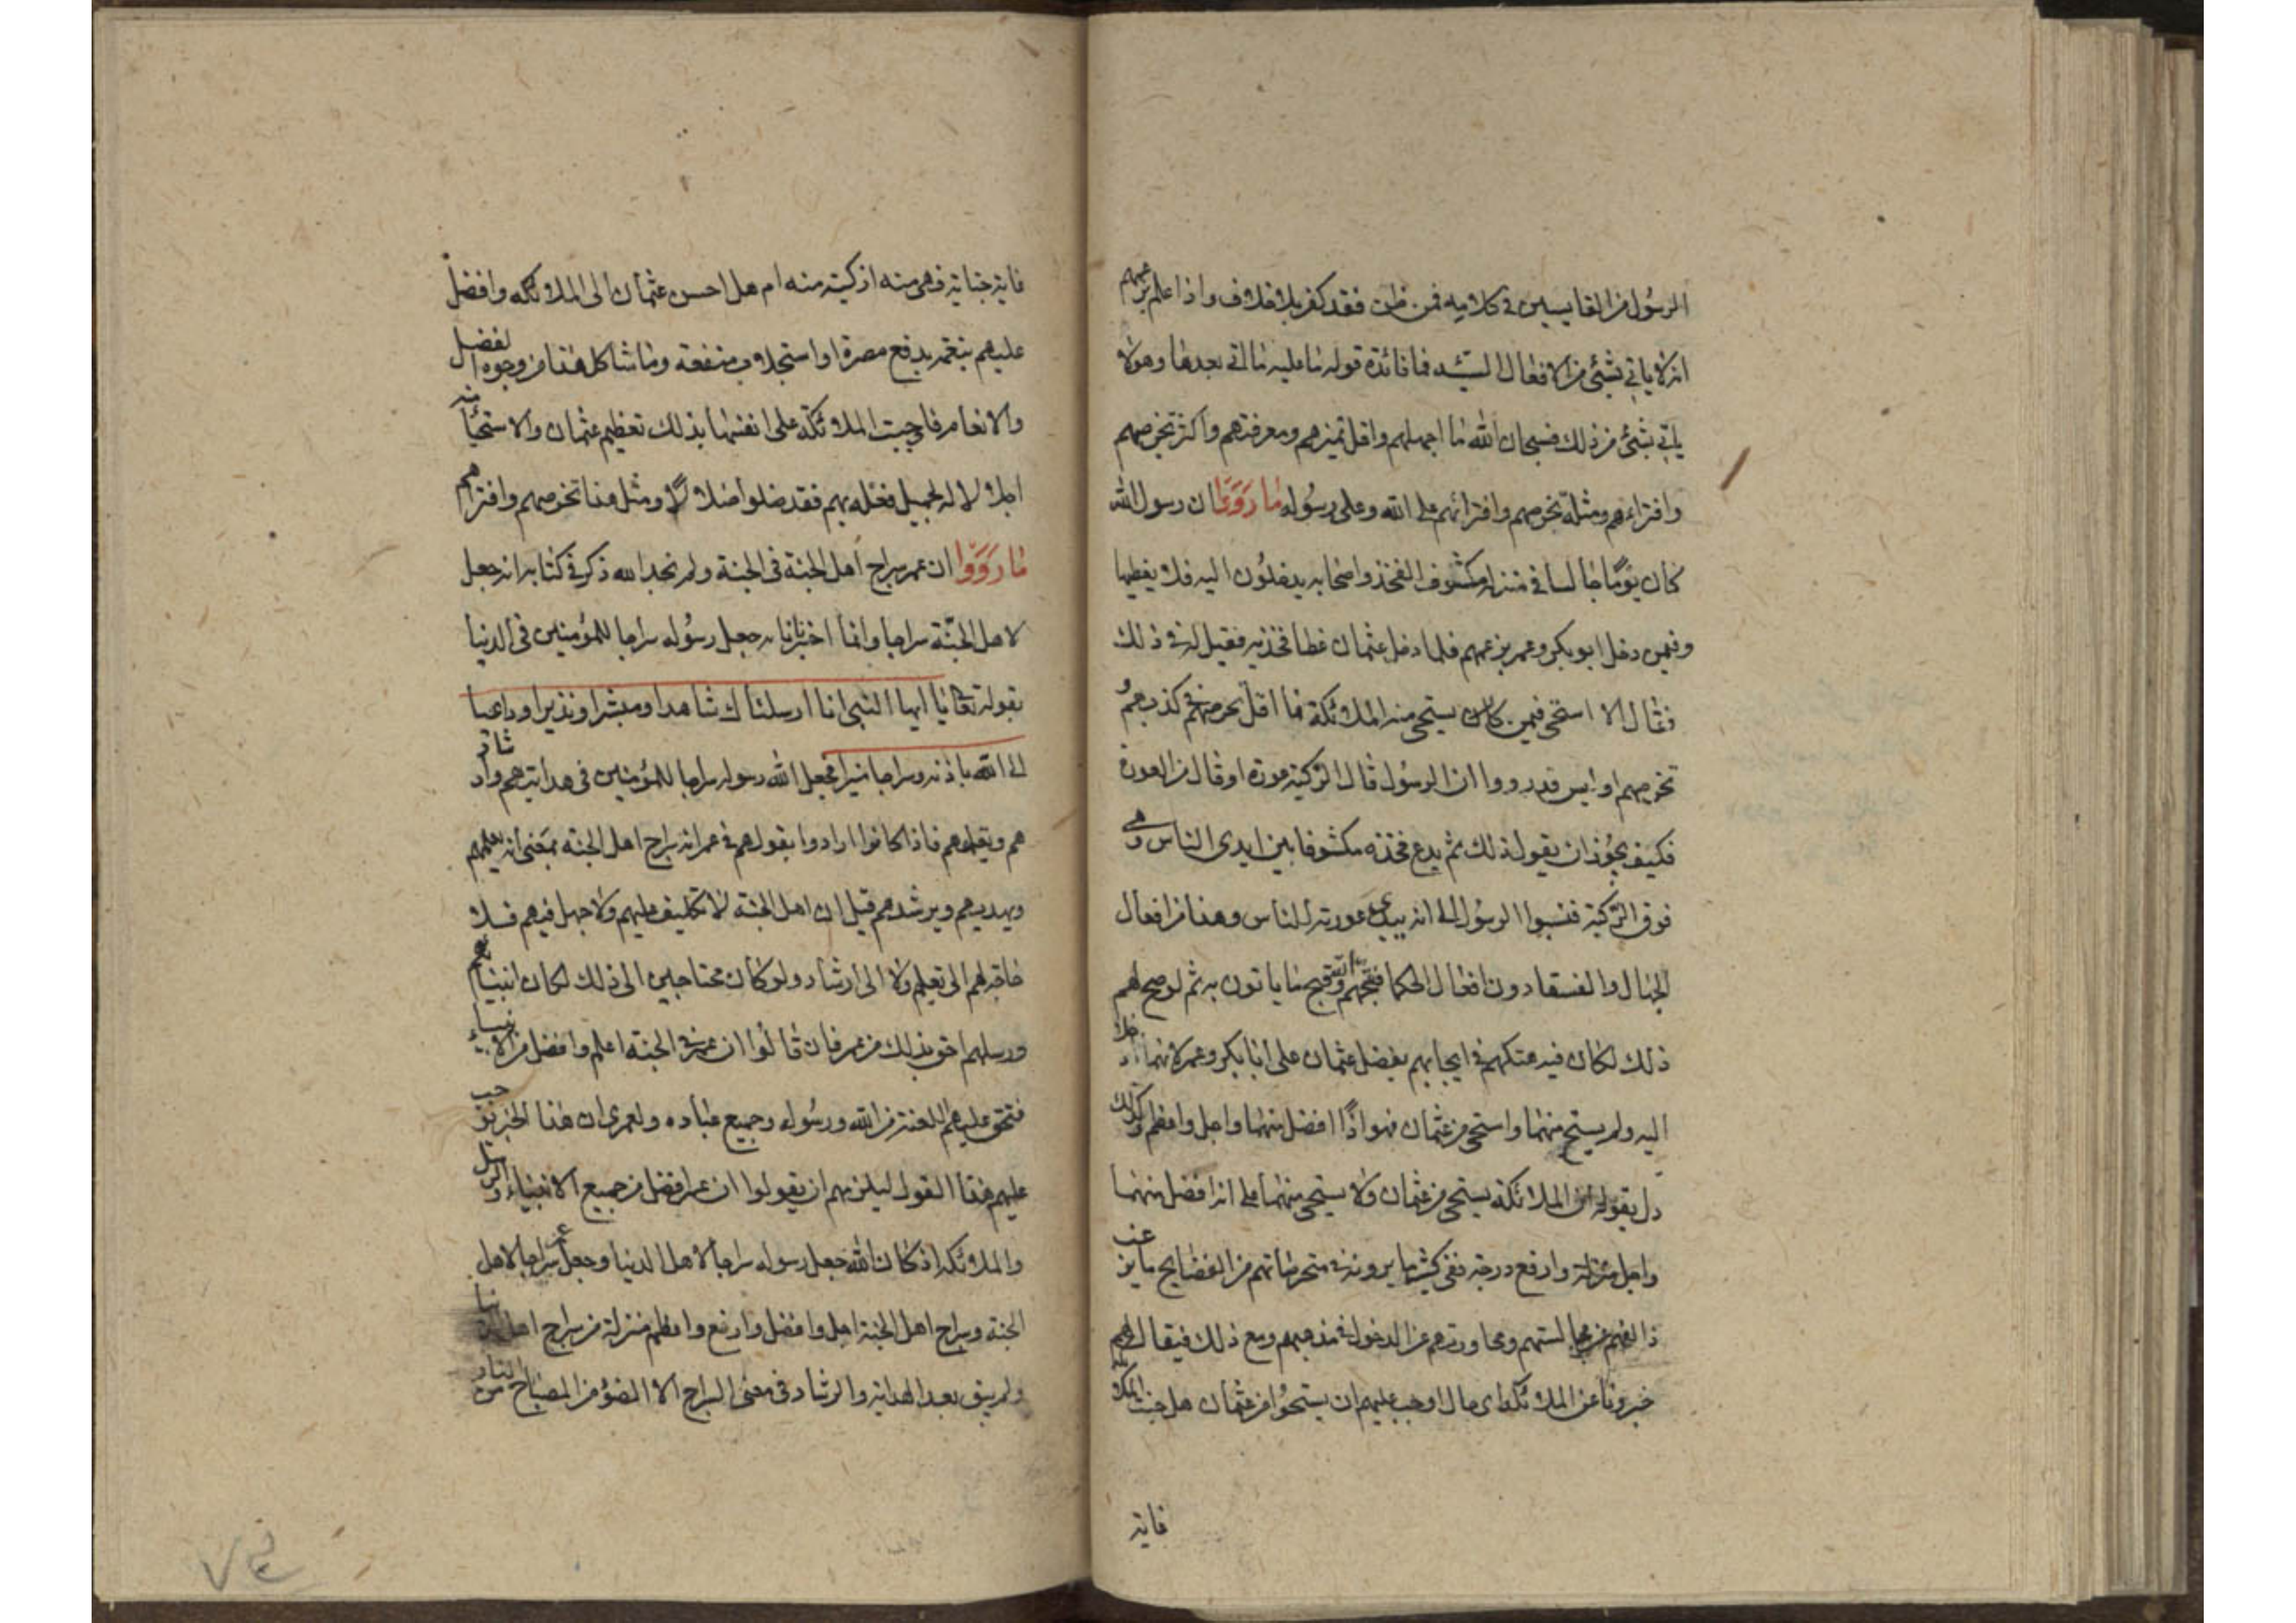 الرسول من القايسين في كلاميه فمن ظن فقد كفر بلا خلاف واذا علم بزعمهم
انه لا ياتي بشئ من الافعال السيئه فما فائدة قوله ما عليه ما اتى بعدها وهو لا
ياتي بشئ من ذلك فسبحان الله ما اجهلهم واقل تميزهم ومعرفتهم واكثر تخرصهم
وافتراءهم ومثله تخرصهم وافترائهم على الله وعلى رسوله ما رووا ان رسول الله
كان يوما جالسا في منزله مكشوف الفخذ واصحابه يدخلون اليه فلا يغطيها
وفيمن دخل ابو بكر وعمر بزعمهم فلما دخل عثمان غطا فخذيه فقيل له في ذلك
فقال الا استحي فيمن كان يستحي منه الملائكة فما اقل تحرجهم في كذبهم و
تخرصهم اوليس قد رووا ان الرسول قال الركبة عورة او قال من العورة
فكيف يجوز ان يقول ذلك ثم يدع فخذه مكشوفا بين ايدي الناس وهي
فوق الركبة فنسبوا الرسول الى انه يبدي عورته للناس وهذا من افعال
الجهال والفسقا دون افعال الحكما فقبحهم الله وقبح ما ياتون به ثم لو صح لهم
ذلك لكان فيه هتكهم في ايجابهم بفضل عثمان على ابا بكر وعمر لانهما دخلا
اليه ولم يستح منهما واستحى من عثمان فهو اذًا افضل منهما واجل واعظم وكذلك
دل بقوله ان الملائكة يستحي من عثمان ولا يستحي منهما على انه افضل منهما
واجل منزلة وارفع درجة ففي كثير ما يروونه في متخرصاتهم من الفضايح ما يزع
ذا الفهم عن مجالستهم ومحاورتهم عن الدخول في مذهبهم ومع ذلك فيقال لهم
خبرونا عن الملائكة اي حال اوجب عليهم ان يستحوا من عثمان هل جنت الملائكة
فاية
فاية جناية فهي منه ازكيته منه ام هل احسن عثمان الى الملائكه وافضل
عليهم بنعمه بدفع مضرة او استجلاب منفعة وما شاكل هذا من وجوه الفضل
والانعام فاوجبت الملائكة على انفسها بذلك تعظيم عثمان والاستحيا منه
اجلالا له لجميل فعله بهم فقد ضلوا ضلالا ومثل هذا تخرصهم وافتراهم
ما رووا ان عمر سراج اهل الجنة في الجنة ولم نجد الله ذكر في كتابه انه جعل
لاهل الجنة سراجا وانما اخبرنا انه جعل رسوله سراجا للمؤمنين في الدنيا
بقوله تعالى يا ايها النبي انا ارسلناك شاهدا ومبشرا ونذيرا وداعيا
الى الله باذنه وسراجا منيرا فجعل الله رسوله سراجا للمؤمنين في هدايتهم وارشاد
هم وتعليمهم فاذا كانوا ارادوا بقولهم في عمر انه سراج اهل الجنة بمعنى انه يعلمهم
ويهديهم ويرشدهم قيل ان اهل الجنة لا تكليف عليهم ولا جهل فيهم فلا
حاجة لهم الى تعليم ولا الى ارشاد ولو كان محتاجين الى ذلك لكان انبياهم
ورسلهم احق بذلك من عمر فان قالوا ان عمر في الجنة اعلم وافضل من الانبياء
فتحق عليهم اللعنة من الله ورسوله وجميع عباده ولعمري ان هذا الخبر يوجب
عليهم هذا القول ليلزمهم ان يقولوا ان عمر افضل من جميع الانبياء والرسل
والملائكه اذ كان الله جعل رسوله سراجا لاهل الدنيا وجعل عمر سراجا لاهل
الجنة وسراج اهل الجنة اجل وافضل وارفع واعظم منزلة من سراج اهل الدنيا
ولم يبق بعد الهداية والرشاد في معنى السراج الا الضوء من المصباح